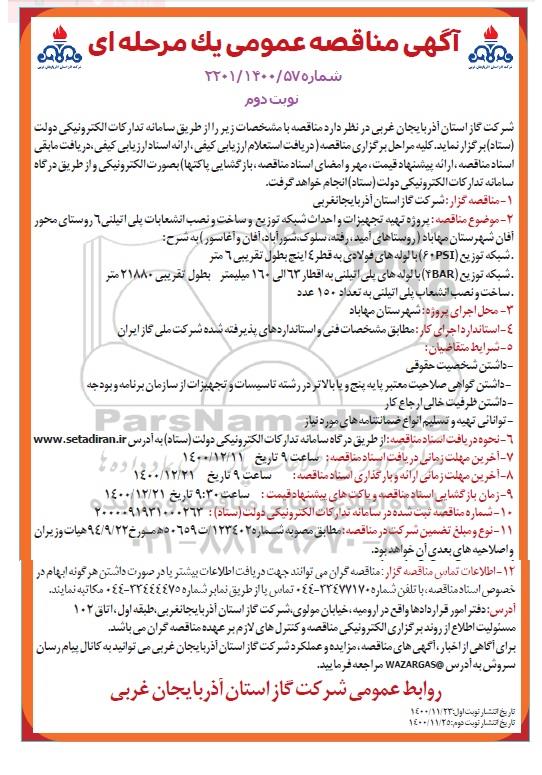 آگهی مناقصه عمومی یك مرحله ای
شماره ۲۲۰۱/۱۴۰۰/۵۷
نوبت دوم
شرکت گاز استان آذربایجان غربی در نظر دارد مناقصه با مشخصات زیر را از طریق سامانه تدارکات الکترونیکی دولت
(ستاد) برگزار نماید. کلیه مراحل برگزاری مناقصه ( دریافت استعلام ارزیابی کیفی ، ارائه اسناد ارزیابی کیفی ، دریافت مابقی
اسناد مناقصه ، ارائه پیشنهاد قیمت ، مهر و امضای اسناد مناقصه ، بازگشایی پاکتها) بصورت الکترونیکی و از طریق درگاه
سامانه تدارکات الکترونیکی دولت (ستاد) انجام خواهد گرفت.
۱- مناقصه گزار : شرکت گاز استان آذربایجانغربی
۲- موضوع مناقصه : پروژه تهیه تجهیزات و احداث شبکه توزیع و ساخت و نصب انشعابات پلی اتیلنی ۶ روستای محور
آفان شهرستان مهاباد ( روستاهای آمید، رفته، سلوک، شورآباد، آفان و آغاسور) به شرح:
. شبکه توزیع (۶۰PSI) با لوله های فولادی به قطر ۴ اینچ بطول تقریبی ۶ متر
. شبکه توزیع (۴BAR) با لوله های پلی اتیلنی به اقطار ۶۳ الی ۱۶۰ میلیمتر بطول تقریبی ۲۱۸۸۰ متر
. ساخت و نصب انشعاب پلی اتیلنی به تعداد ۱۵۰ عدد
۳- محل اجرای پروژه : شهرستان مهاباد
۴- استاندارد اجرای کار : مطابق مشخصات فنی و استانداردهای پذیرفته شده شرکت ملی گاز ایران
۵- شرایط متقاضیان :
-داشتن شخصیت حقوقی
-داشتن گواهی صلاحیت معتبر پایه پنج و یا بالاتر در رشته تاسیسات و تجهیزات از سازمان برنامه و بودجه
-داشتن ظرفیت خالی ارجاع کار
- توانائی تهیه و تسلیم انواع ضمانتنامه های مورد نیاز
۶- نحوه دریافت اسناد مناقصه: از طریق درگاه سامانه تدارکات الکترونیکی دولت (ستاد) به آدرس www.setadiran.ir
۷- آخرین مهلت زمانی دریافت اسناد مناقصه : ساعت ۹ تاریخ ۱۴۰۰/۱۲/۱۱
۸- آخرین مهلت زمانی ارائه و بارگذاری اسناد مناقصه : ساعت ۹ تاریخ ۱۴۰۰/۱۲/۲۱
۹- زمان بازگشایی اسناد مناقصه و پاکت های پیشنهاد قیمت : ساعت ۹:۳۰ تاریخ ۱۴۰۰/۱۲/۲۱
۱۰- شماره مناقصه ثبت شده در سامانه تدارکات الکترونیکی دولت (ستاد) : ۲۰۰۰۰۹۱۹۳۱۰۰۰۲۶۳
۱۱- نوع و مبلغ تضمین شرکت در مناقصه: مطابق مصوبه شماره ۱۲۳۴۰۲/ت ۵۰۶۵۹ ه مورخ ۹۴/۹/۲۲ هیات وزیران
و اصلاحیه های بعدی آن خواهد بود.
۱۲- اطلاعات تماس مناقصه گزار : مناقصه گران می توانند جهت دریافت اطلاعات بیشتر یا در صورت داشتن هرگونه ابهام در
خصوص اسناد مناقصه، با تلفن شماره ۳۳۴۷۷۱۷۰-۰۴۴ تماس یا از طریق نمابر شماره ۳۳۴۴۴۴۷۵-۰۴۴ مکاتبه نمایند.
آدرس: دفتر امور قراردادها واقع در ارومیه، خیابان مولوی، شرکت گاز استان آذربایجانغربی، طبقه اول ، اتاق ۱۰۲
مسئولیت اطلاع از روند برگزاری الکترونیکی مناقصه و کنترل های لازم بر عهده مناقصه گران می باشد.
برای آگاهی از اخبار ، آگهی های مناقصه ، مزایده و عملکرد شرکت گاز استان آذربایجان غربی می توانید به کانال پیام رسان
سروش به آدرس @WAZARGAS مراجعه فرمایید.
روابط عمومی شرکت گاز استان آذربایجان غربی
تاریخ انتشار نوبت اول: ۱۴۰۰/۱۱/۲۳
تاریخ انتشار نوبت دوم: ۱۴۰۰/۱۱/۲۵